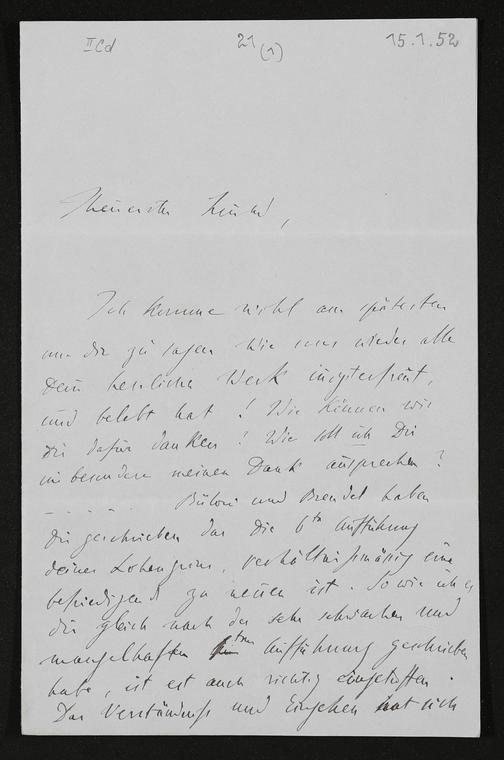 II Cd
21 (1)
15.1.52
Theuerster Freund,
Ich komme nicht am spätesten
um dir zu sagen wie uns wieder alle
Dein herrliches Werk
und belebt hat! Wie können wir
dir dafür danken? Wie soll ich Dir
insbesondere meinen Dank aussprechen?
– – – – – Bülow und Brendel haben
dir geschrieben das die 6te Aufführung
deines Lohengrins, verhältnißmässig eine
befriedigend zu nennen ist. So wie ich es
dir gleich nach der sehr schwachen und
mangelhaften Aufführung geschrieben
habe, ist es auch richtig eingetroffen.
Das Verständniß und Eingehen hat sich